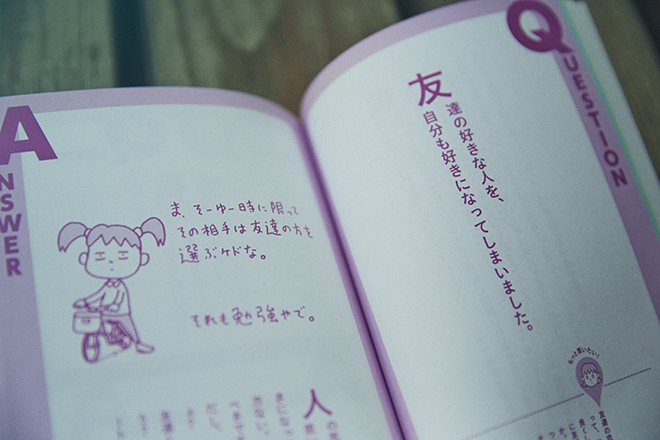 QUESTION
友達の好きな人を、
自分も好きになってしまいました。
もっと言いたい!
ANSWER
ま、そーゆー時に限って
その相手は友達の方を
選ぶケドな。
それも勉強やで。
人